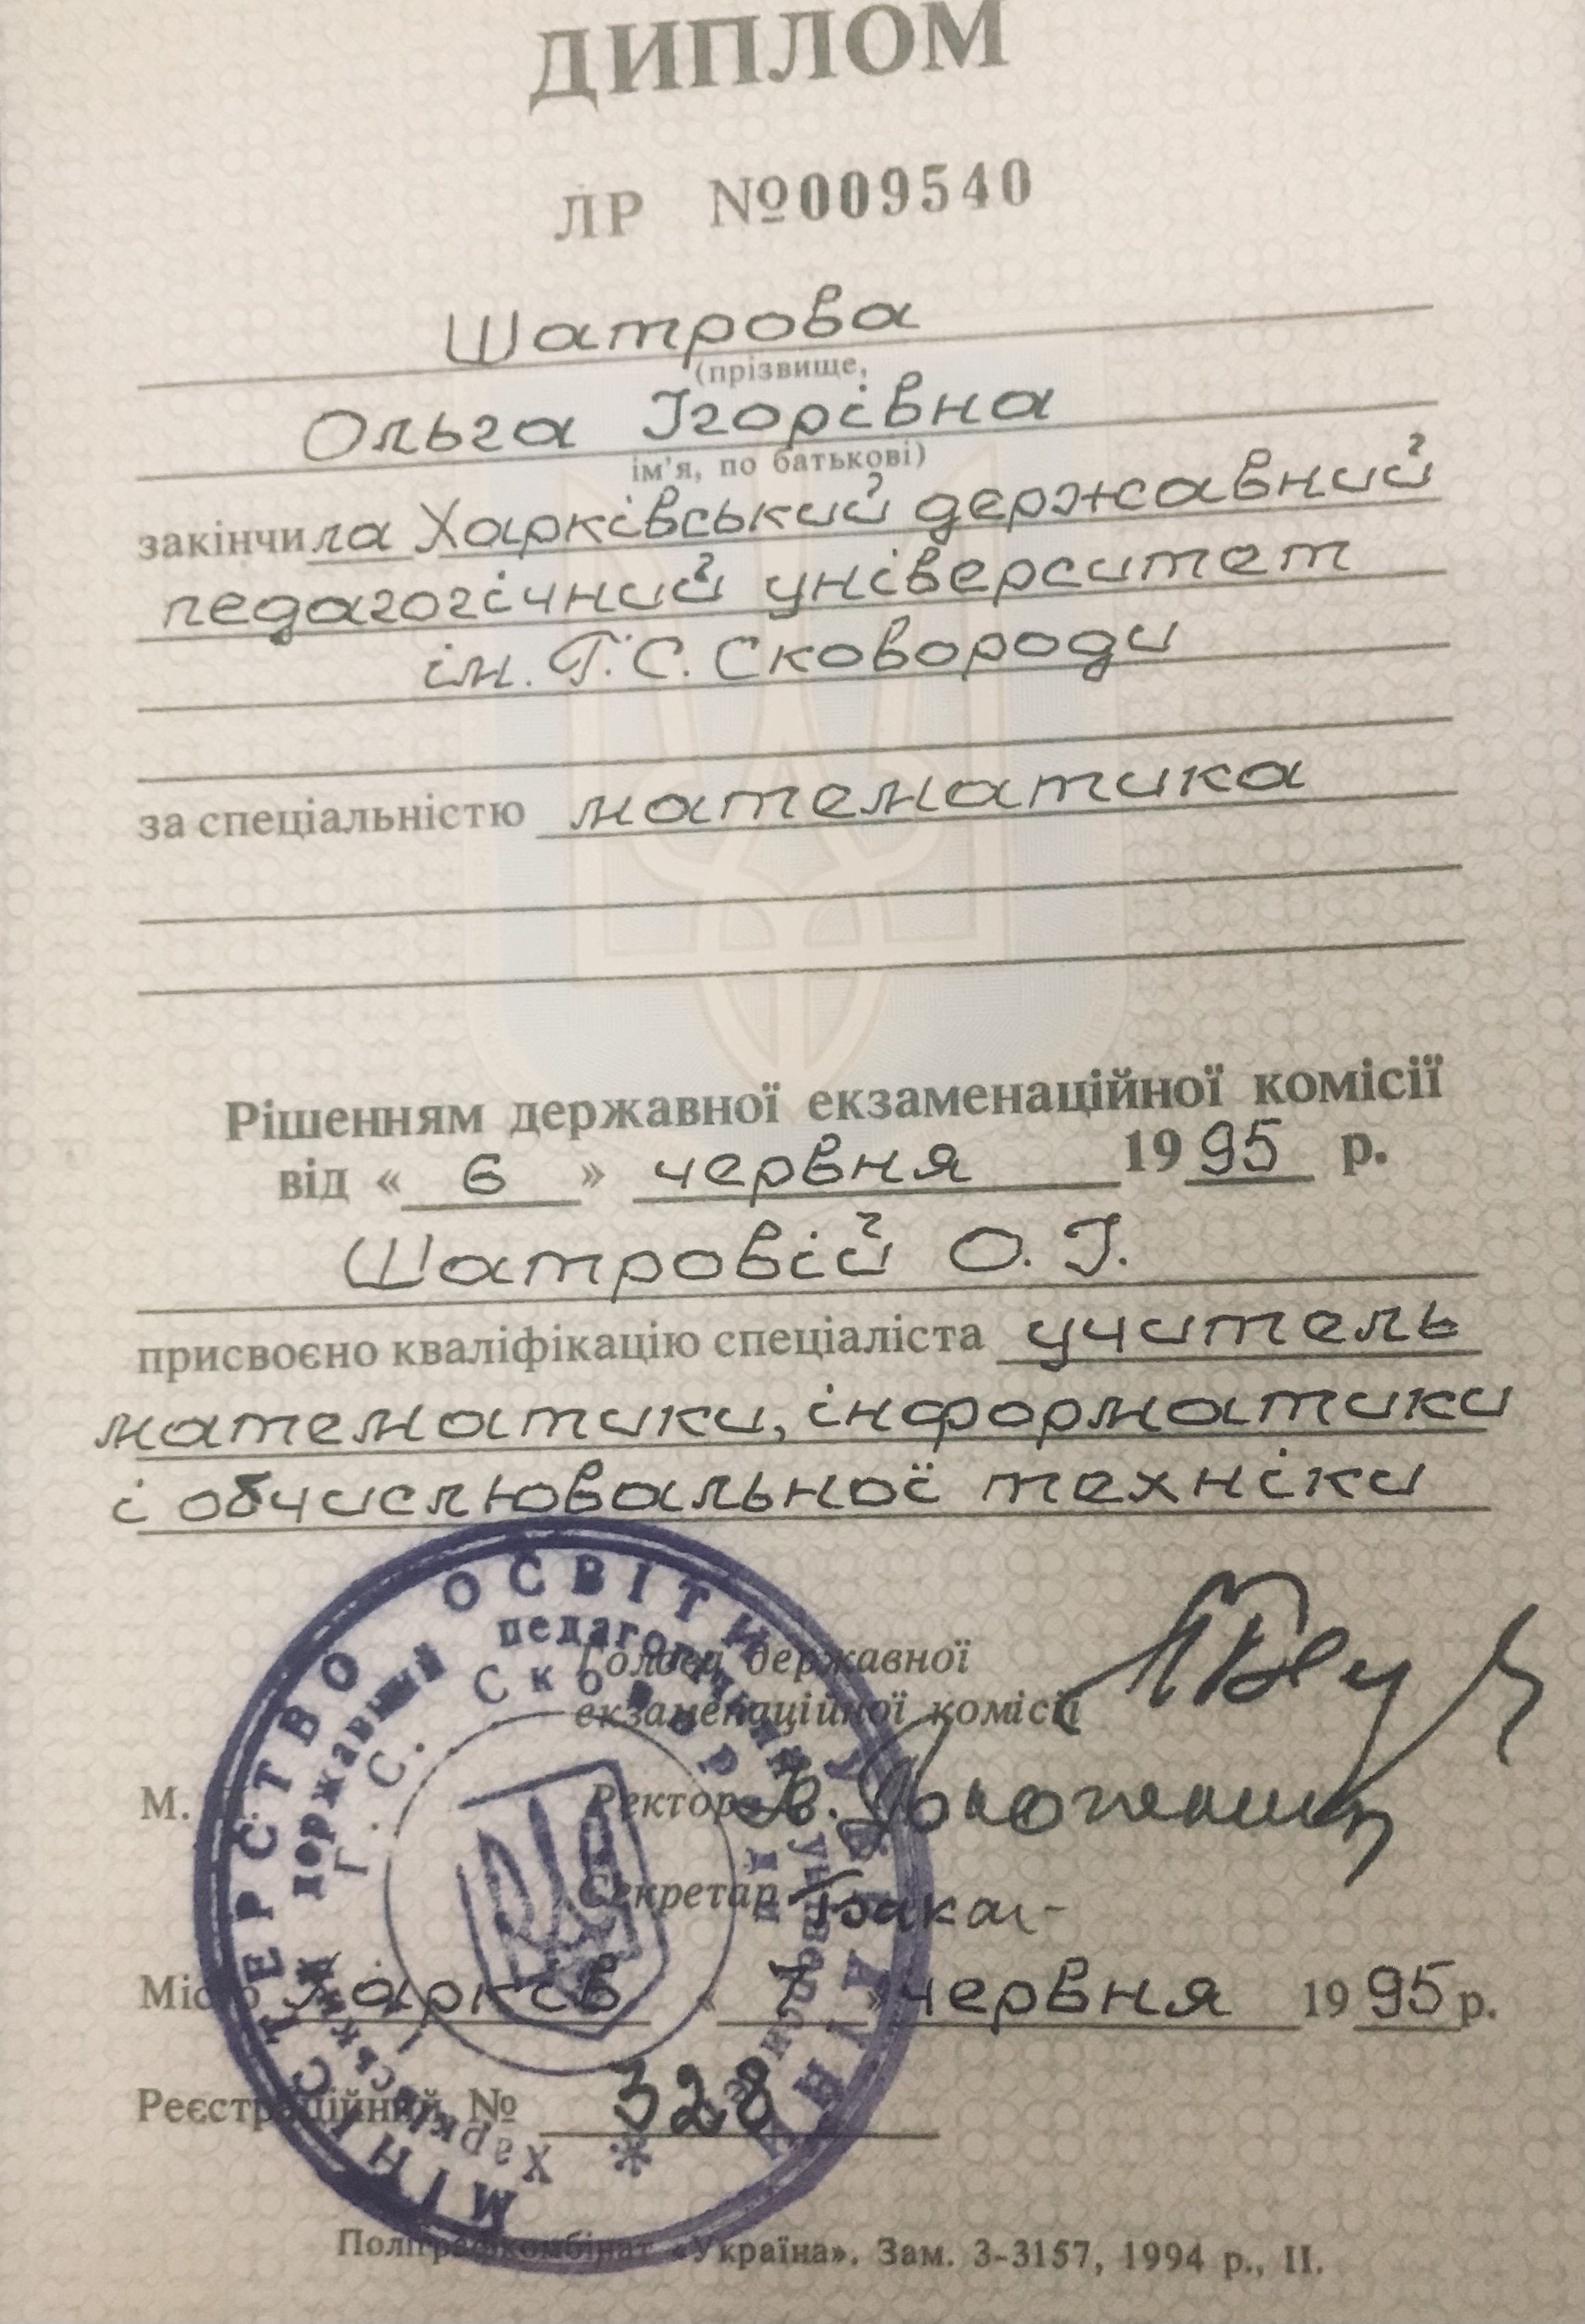 ДИПЛОМ
ЛР №009540
Шатрова
(прізвище,
Ольга Ігорівна
ім'я, по батькові)
закінчила Харківський державний
педагогічний університет
ім. Г.С. Сковороди
за спеціальністю математика
Рішенням державної екзаменаційної комісії
від « 6 » червня 1995 р.
Шатровій О. І.
присвоєно кваліфікацію спеціаліста учитель
математики, інформатики
і обчислювальної техніки
Голова державної
екзаменаційної комісії
М. П.
Ректор
Секретар
Місто Харків « 7 » червня 1995 р.
Реєстраційний № 328
МІНІСТЕРСТВО ОСВІТИ УКРАЇНИ
Харківський державний педагогічний університет
Г. С. Сковороди
Поліграфкомбінат «Україна». Зам. 3-3157, 1994 р., II.